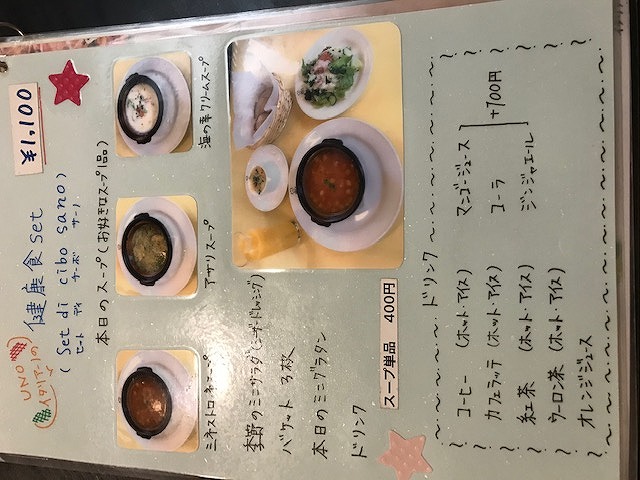 UNO
イタリアーノの
健康食set
¥1,100
(Set di cibo sano)
セート ディ チーボ サーノ
本日のスープ(お好きなスープ1品)
ミネストローネスープ
アサリスープ
海の幸クリームスープ
季節のミニサラダ(シーザードレッシング)
バケット 3枚
本日のミニグラタン
ドリンク
スープ単品 400円
ドリンク
コーヒー (ホット・アイス)
カフェラッテ (ホット・アイス)
紅茶 (ホット・アイス)
ウーロン茶 (ホット・アイス)
オレンジジュース
マンゴージュース
コーラ
ジンジャエール
+100円